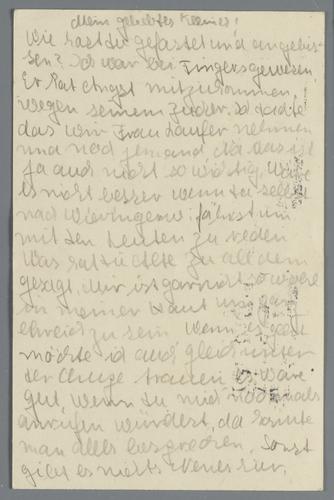 Mein geliebtes Kleines!
Wie hast du gefastet und angebis-
sen? Ich war bei Fingers gewesen.
Er hat Angst mitzukommen,
wegen seinem Zucker, so dachte
das wir Frau Laufer nehmen
und noch jemand. Na das ist
ja auch nicht so wichtig. Wäre
es nicht besser wenn du selbst
nach Wieringen fährst um
mit den Leuten zu reden
Was hat zu all dem
gesagt. Mir ist gar nicht so wohl
in meiner Haut
ehrlich zu sein. Wenn es geht
möchte ich auch gleich unter
der Chuppe trauen es wäre
gut, wenn du mich nochmals
anrufen würdest, da könnte
man alles besprechen. Sonst
gibt es nichts Neues hier.